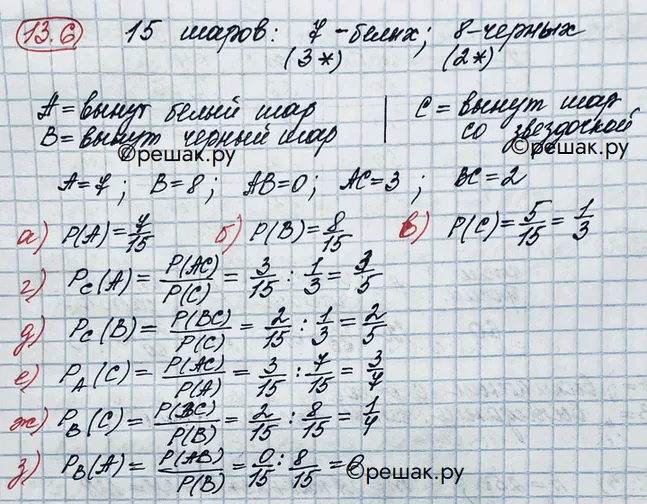 13.6 15 шаров: 7 - белых; 8 - черных
(3*) (2*)
A = вынут белый шар | C = вынут шар
B = вынут черный шар со звездочкой
©решак.ру ©решак.ру
A=7; B=8; AB=0; AC=3; BC=2
а) P(A)=7/15 б) P(B)=8/15 в) P(C)=5/15=1/3
г) P_C(A)=P(AC)/P(C)=3/15:1/3=3/5
д) P_C(B)=P(BC)/P(C)=2/15:1/3=2/5
е) P_A(C)=P(AC)/P(A)=3/15:7/15=3/7
ж) P_B(C)=P(BC)/P(B)=2/15:8/15=1/4
з) P_B(A)=P(AB)/P(B)=0/15:8/15=0
©решак.ру